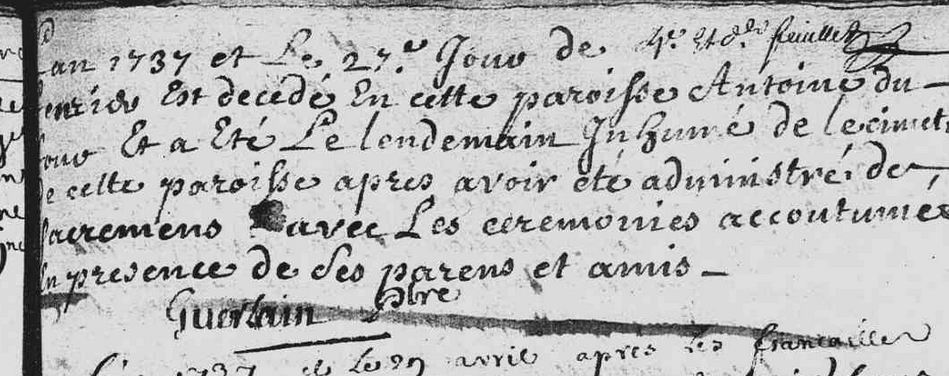 L'an 1737 et Le 27.e Jour de 4.e et d.r feuillet
fevrier Est decedé En cette paroisse Antoine du-
four Et a Eté Le lendemain Inhumé de le cimet
de cette paroisse apres avoir été administré des
sacremens avec Les ceremonies accoutumées
En presence de Ses parens et amis _
Guerlain pbre
1737 et Le 29 avril après Les françailles